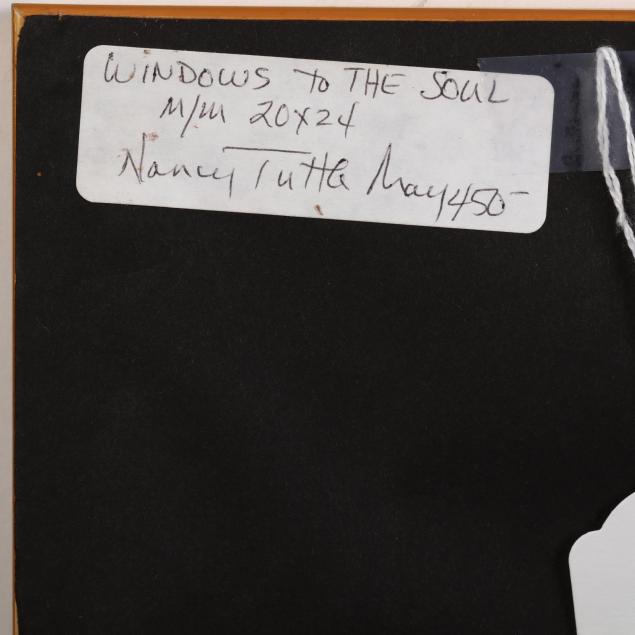 WINDOWS to THE SOUL
M/M 20x24
Nancy Tuttle May 450-